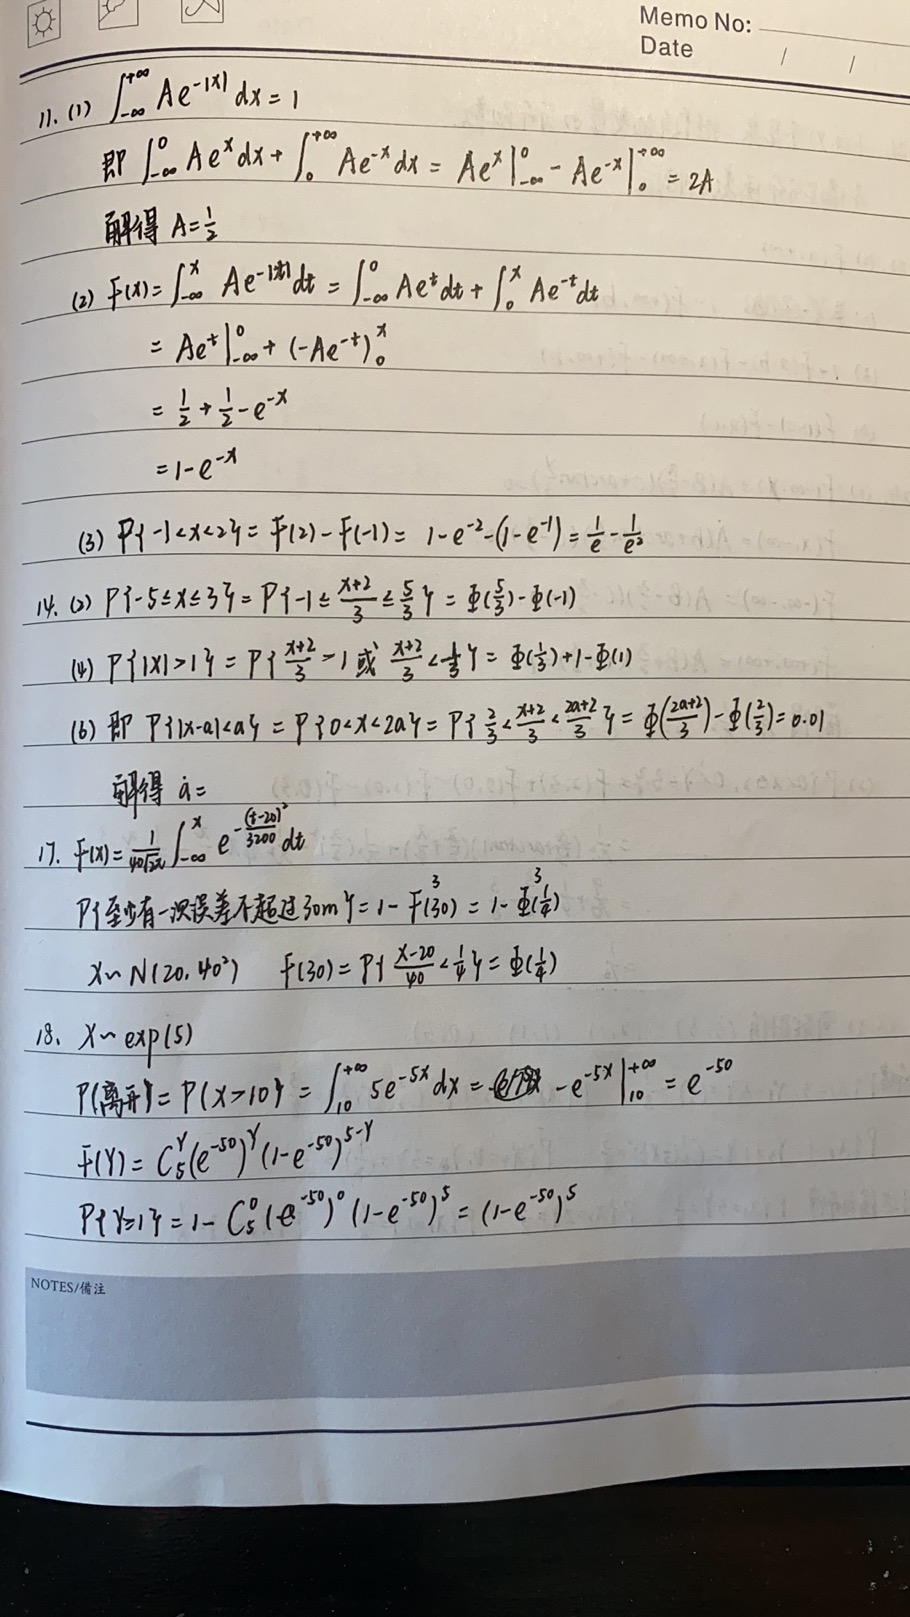 Memo No:
Date / /
11. (1) ∫_{-∞}^{+∞} Ae^{-|x|} dx = 1
即 ∫_{-∞}^{0} Ae^{x}dx + ∫_{0}^{+∞} Ae^{-x}dx = Ae^{x}|_{-∞}^{0} - Ae^{-x}|_{0}^{+∞} = 2A
解得 A = 1/2
(2) F(x) = ∫_{-∞}^{x} Ae^{-|t|}dt = ∫_{-∞}^{0} Ae^{t}dt + ∫_{0}^{x} Ae^{-t}dt
= Ae^{t}|_{-∞}^{0} + (-Ae^{-t})_{0}^{x}
= 1/2 + 1/2 - e^{-x}
= 1 - e^{-x}
(3) P{-1<x<2} = F(2) - F(-1) = 1 - e^{-2} - (1 - e^{-1}) = 1/e - 1/e²
14. (2) P{-5≤x≤3} = P{-1 ≤ (x+2)/3 ≤ 5/3} = Φ(5/3) - Φ(-1)
(4) P{|X|>1} = P{(x+2)/3 > 1 或 (x+2)/3 < 1/3} = Φ(1/3) + 1 - Φ(1)
(6) 即 P{|x-a|<a} = P{0<x<2a} = P{2/3 < (x+2)/3 < (2a+2)/3} = Φ((2a+2)/3) - Φ(2/3) = 0.01
解得 a =
17. F(x) = 1/(40√2π) ∫_{-∞}^{x} e^{-(t-20)²/3200} dt
P{至少有一次误差不超过30m} = 1 - F³(30) = 1 - Φ³(1/4)
X~N(20, 40²) F(30) = P{(X-20)/40 < 1/4} = Φ(1/4)
18. X~exp(5)
P{离开} = P{X>10} = ∫_{10}^{+∞} 5e^{-5x} dx = -e^{-5x}|_{10}^{+∞} = e^{-50}
F(Y) = C_5^Y (e^{-50})^Y (1-e^{-50})^{5-Y}
P{Y≥1} = 1 - C_5^0 (e^{-50})^0 (1-e^{-50})^5 = (1-e^{-50})^5
NOTES/備注